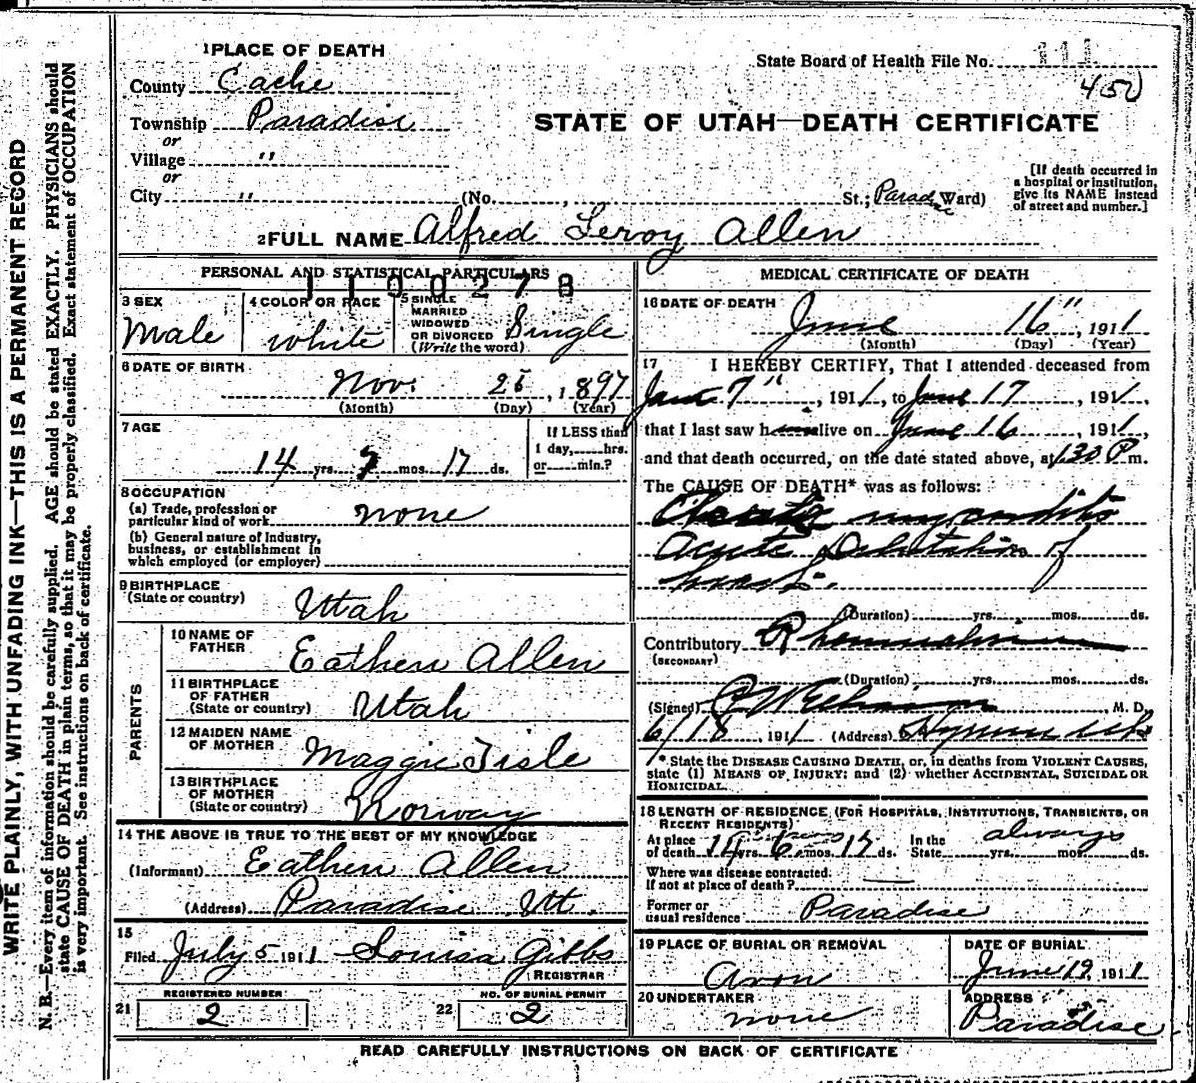 WRITE PLAINLY, WITH UNFADING INK—THIS IS A PERMANENT RECORD
N. B.—Every item of information should be carefully supplied. AGE should be stated EXACTLY. PHYSICIANS should
state CAUSE OF DEATH in plain terms, so that it may be properly classified. Exact statement of OCCUPATION
is very important. See instructions on back of certificate.
1 PLACE OF DEATH
State Board of Health File No. 111
450
County Cache
Township Paradise
or
Village "
or
City "
STATE OF UTAH—DEATH CERTIFICATE
(No. , St.; Paradise Ward)
[If death occurred in
a hospital or institution,
give its NAME instead
of street and number.]
2 FULL NAME Alfred Leroy Allen
PERSONAL AND STATISTICAL PARTICULARS
1100278
3 SEX
Male
4 COLOR OR RACE
White
5 SINGLE
MARRIED
WIDOWED
OR DIVORCED
(Write the word)
Single
6 DATE OF BIRTH
Nov. 25, 1897
(Month) (Day) (Year)
7 AGE
14 yrs. mos. 17 ds.
If LESS than
1 day, hrs.
or min.?
8 OCCUPATION
(a) Trade, profession or
particular kind of work none
(b) General nature of Industry,
business, or establishment in
which employed (or employer)
9 BIRTHPLACE
(State or country)
Utah
PARENTS
10 NAME OF
FATHER
Eathen Allen
11 BIRTHPLACE
OF FATHER
(State or country)
Utah
12 MAIDEN NAME
OF MOTHER
Maggie Tisle
13 BIRTHPLACE
OF MOTHER
(State or country)
Norway
14 THE ABOVE IS TRUE TO THE BEST OF MY KNOWLEDGE
(Informant) Eathen Allen
(Address) Paradise Ut.
15
Filed July 5 1911 Louisa Gibbs
REGISTRAR
21 REGISTERED NUMBER
2
22 NO. OF BURIAL PERMIT
2
MEDICAL CERTIFICATE OF DEATH
16 DATE OF DEATH
June 16", 1911
(Month) (Day) (Year)
17 I HEREBY CERTIFY, That I attended deceased from
June 7", 1911, to June 17, 1911,
that I last saw him alive on June 16, 1911,
and that death occurred, on the date stated above, at 1.30 P m.
The CAUSE OF DEATH* was as follows:
Acute Dilatation of
heart.
(Duration) yrs. mos. ds.
Contributory Rheumatism
(SECONDARY)
(Duration) yrs. mos. ds.
(Signed) M. D.
6/18, 1911 (Address) Hyrum Utah
* State the DISEASE CAUSING DEATH, or, in deaths from VIOLENT CAUSES,
state (1) MEANS OF INJURY; and (2) whether ACCIDENTAL, SUICIDAL OR
HOMICIDAL.
18 LENGTH OF RESIDENCE (FOR HOSPITALS, INSTITUTIONS, TRANSIENTS, OR
RECENT RESIDENTS)
At place
of death 14 yrs. 6 mos. 17 ds.
In the
State always yrs. mos. ds.
Where was disease contracted,
If not at place of death? —
Former or
usual residence Paradise
19 PLACE OF BURIAL OR REMOVAL
Avon
DATE OF BURIAL
June 19, 1911
20 UNDERTAKER
none
ADDRESS
Paradise
READ CAREFULLY INSTRUCTIONS ON BACK OF CERTIFICATE